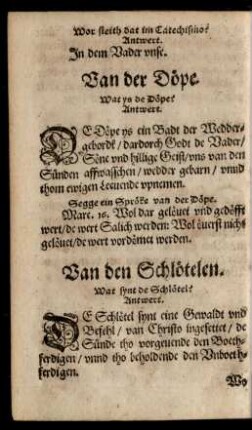 Wor steith dat im Catechismo?
Antwert.
In dem Vader vnse.
Van der Döpe.
Wat ys de Döpe?
Antwert.
DE Döpe ys ein Badt der Wedder-
gebordt / dardorch Godt de Vader /
Söne vnd hillige Geist / vns van den
Sünden affwasschen / wedder gebarn / vnnd
thom ewigen Leuende vpnemen.
Segge ein Spröke van der Döpe.
Marc. 16. Wol dar gelöuet vnd gedöfft
wert / de wert Salich werden: Wol öuerst nich
gelöuet / de wert vordömet werden.
Van den Schlötelen.
Wat synt de Schlötel?
Antwert.
DE Schlötel synt eine Gewaldt vnd
Befehl / van Christo ingesettet / de
Sünde tho vorgeuende den Botth-
ferdigen / vnnd tho beholdende den Vnboeth-
ferdigen.